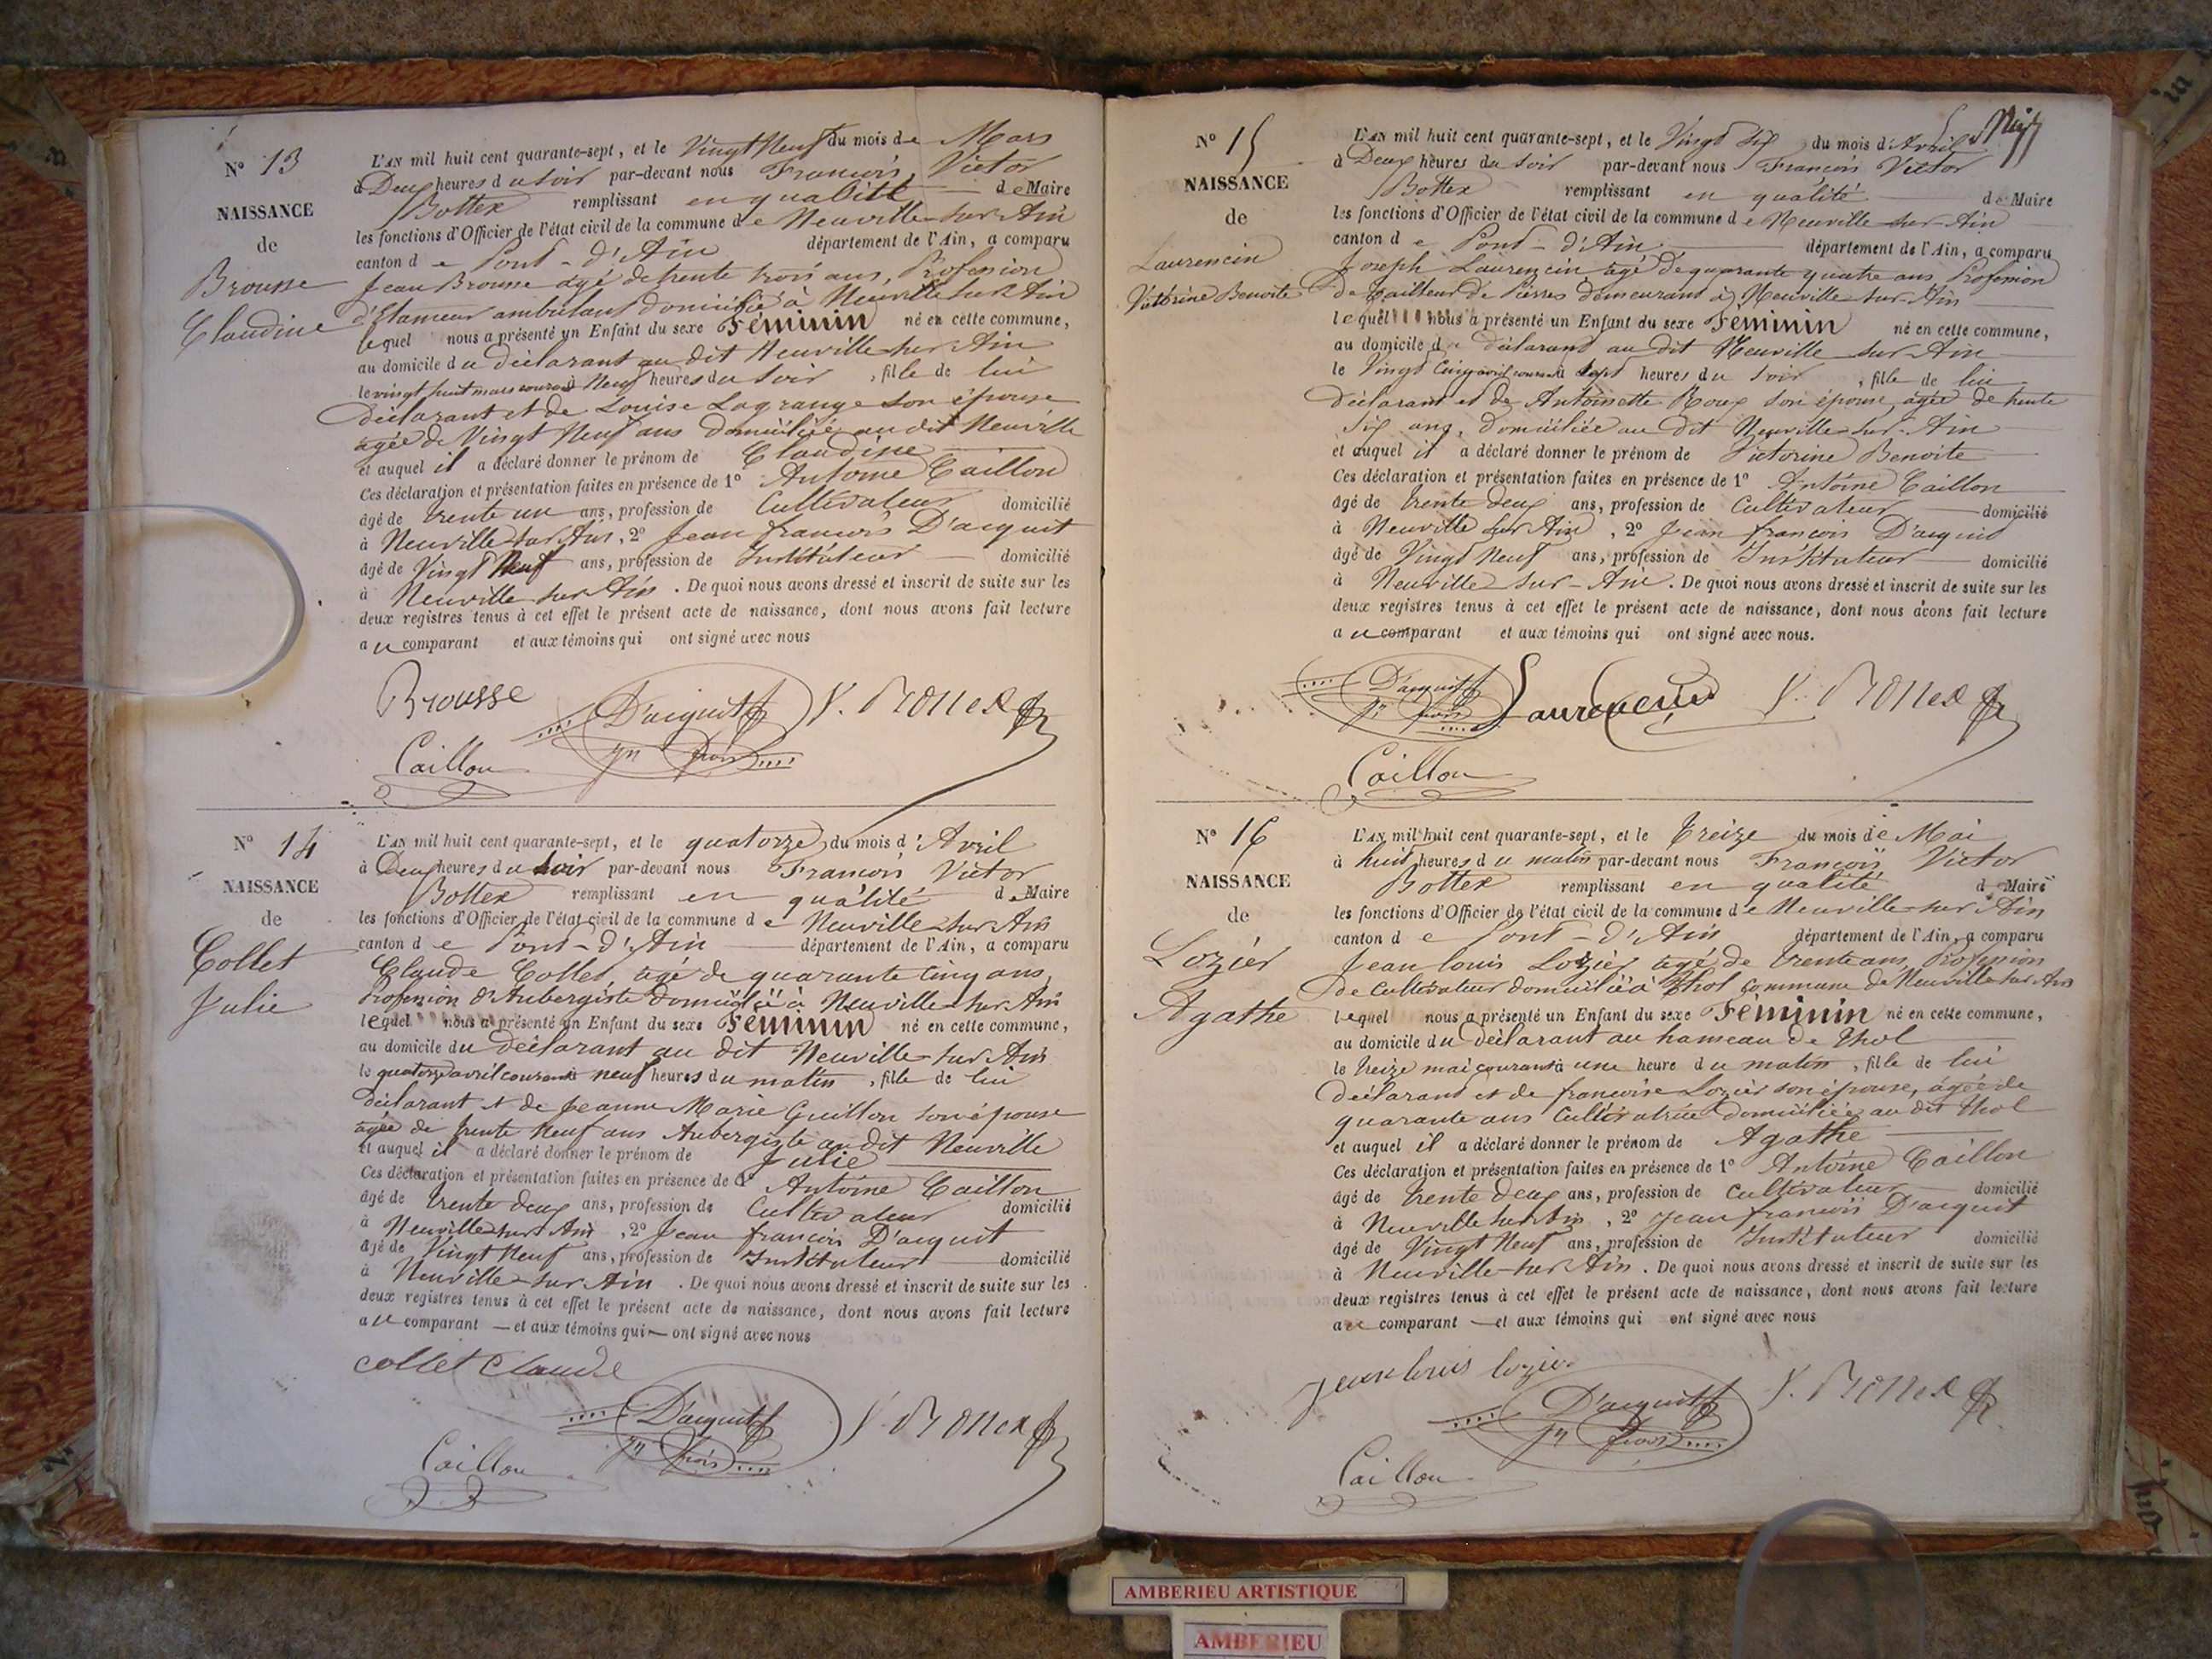 N° 13
NAISSANCE
de
Brousse
Claudine
L'AN mil huit cent quarante-sept, et le Vingt Neuf du mois de Mars
à Deux heures du soir par-devant nous François Victor
Bottex remplissant en qualité de Maire
les fonctions d'Officier de l'état civil de la commune de Neuville sur Ain
canton de Pont-d'Ain département de l'Ain, a comparu
Jean Brousse agé de trente trois ans, Profession
d'Etameur ambulant domicilié à Neuville sur Ain
lequel nous a présenté un Enfant du sexe Féminin né en cette commune,
au domicile du déclarant au dit Neuville sur Ain
le vingt huit mars courant à Neuf heures du soir, fille de lui
déclarant et de Louise Lagrange son épouse
agée de Vingt Neuf ans domiciliée au dit Neuville
et auquel il a déclaré donner le prénom de Claudine
Ces déclaration et présentation faites en présence de 1° Antoine Caillon
âgé de trente un ans, profession de Cultivateur domicilié
à Neuville sur Ain, 2° Jean françois D'acquit
âgé de Vingt Neuf ans, profession de Instituteur domicilié
à Neuville sur Ain. De quoi nous avons dressé et inscrit de suite sur les
deux registres tenus à cet effet le présent acte de naissance, dont nous avons fait lecture
au comparant et aux témoins qui ont signé avec nous
Brousse D'acquit V. Bottex
Caillon Jn frois
N° 14
NAISSANCE
de
Collet
Julie
L'AN mil huit cent quarante-sept, et le quatorze du mois d'Avril
à Deux heures du soir par-devant nous François Victor
Bottex remplissant en qualité de Maire
les fonctions d'Officier de l'état civil de la commune de Neuville sur Ain
canton de Pont-d'Ain département de l'Ain, a comparu
Claude Collet, agé de quarante cinq ans,
Profession d'Aubergiste domicilié à Neuville sur Ain
lequel nous a présenté un Enfant du sexe Féminin né en cette commune,
au domicile du déclarant au dit Neuville sur Ain
le quatorze avril courant à neuf heures du matin, fille de lui
déclarant et de Jeanne Marie Guillon son épouse
agée de trente Neuf ans Aubergiste au dit Neuville
et auquel il a déclaré donner le prénom de Julie
Ces déclaration et présentation faites en présence de 1° Antoine Caillon
âgé de trente deux ans, profession de Cultivateur domicilié
à Neuville sur Ain, 2° Jean françois D'acquit
âgé de Vingt Neuf ans, profession de Instituteur domicilié
à Neuville sur Ain. De quoi nous avons dressé et inscrit de suite sur les
deux registres tenus à cet effet le présent acte de naissance, dont nous avons fait lecture
au comparant et aux témoins qui ont signé avec nous
collet Claude
D'acquit V. Bottex
Jn frois
Caillon
N° 15
NAISSANCE
de
Laurencin
Victorine Benoite
L'AN mil huit cent quarante-sept, et le Vingt six du mois d'Avril
à Deux heures du soir par-devant nous François Victor
Bottex remplissant en qualité de Maire
les fonctions d'Officier de l'état civil de la commune de Neuville sur Ain
canton de Pont-d'Ain département de l'Ain, a comparu
Joseph Laurencin, agé de quarante quatre ans Profession
de tailleur de Pierres demeurant à Neuville sur Ain
lequel nous a présenté un Enfant du sexe Féminin né en cette commune,
au domicile du déclarant au dit Neuville sur Ain
le Vingt Cinq avril courant à sept heures du soir, fille de lui
déclarant et de Antoinette Roux son épouse, agée de trente
six ans, domiciliée au dit Neuville sur Ain
et auquel il a déclaré donner le prénom de Victorine Benoite
Ces déclaration et présentation faites en présence de 1° Antoine Caillon
âgé de trente deux ans, profession de Cultivateur domicilié
à Neuville sur Ain, 2° Jean françois D'acquit
âgé de Vingt Neuf ans, profession de Instituteur domicilié
à Neuville sur Ain. De quoi nous avons dressé et inscrit de suite sur les
deux registres tenus à cet effet le présent acte de naissance, dont nous avons fait lecture
au comparant et aux témoins qui ont signé avec nous.
D'acquit Laurencin V. Bottex
Jn frois
Caillon
N° 16
NAISSANCE
de
Lozier
Agathe
L'AN mil huit cent quarante-sept, et le treize du mois de Mai
à huit heures du matin par-devant nous François Victor
Bottex remplissant en qualité de Maire
les fonctions d'Officier de l'état civil de la commune de Neuville sur Ain
canton de Pont-d'Ain département de l'Ain, a comparu
Jean louis Lozier, agé de trente ans, Profession
de Cultivateur domicilié à Thol commune de Neuville sur Ain
lequel nous a présenté un Enfant du sexe Féminin né en cette commune,
au domicile du déclarant au hameau de Thol
le treize mai courant à une heure du matin, fille de lui
déclarant et de françoise Lozier son épouse, agée de
quarante ans Cultivatrice domiciliée au dit Thol
et auquel il a déclaré donner le prénom de Agathe
Ces déclaration et présentation faites en présence de 1° Antoine Caillon
âgé de trente deux ans, profession de Cultivateur domicilié
à Neuville sur Ain, 2° Jean françois D'acquit
âgé de Vingt Neuf ans, profession de Instituteur domicilié
à Neuville sur Ain. De quoi nous avons dressé et inscrit de suite sur les
deux registres tenus à cet effet le présent acte de naissance, dont nous avons fait lecture
au comparant et aux témoins qui ont signé avec nous
jean louis lozier
D'acquit V. Bottex
Jn frois
Caillon
AMBERIEU ARTISTIQUE
AMBERIEU